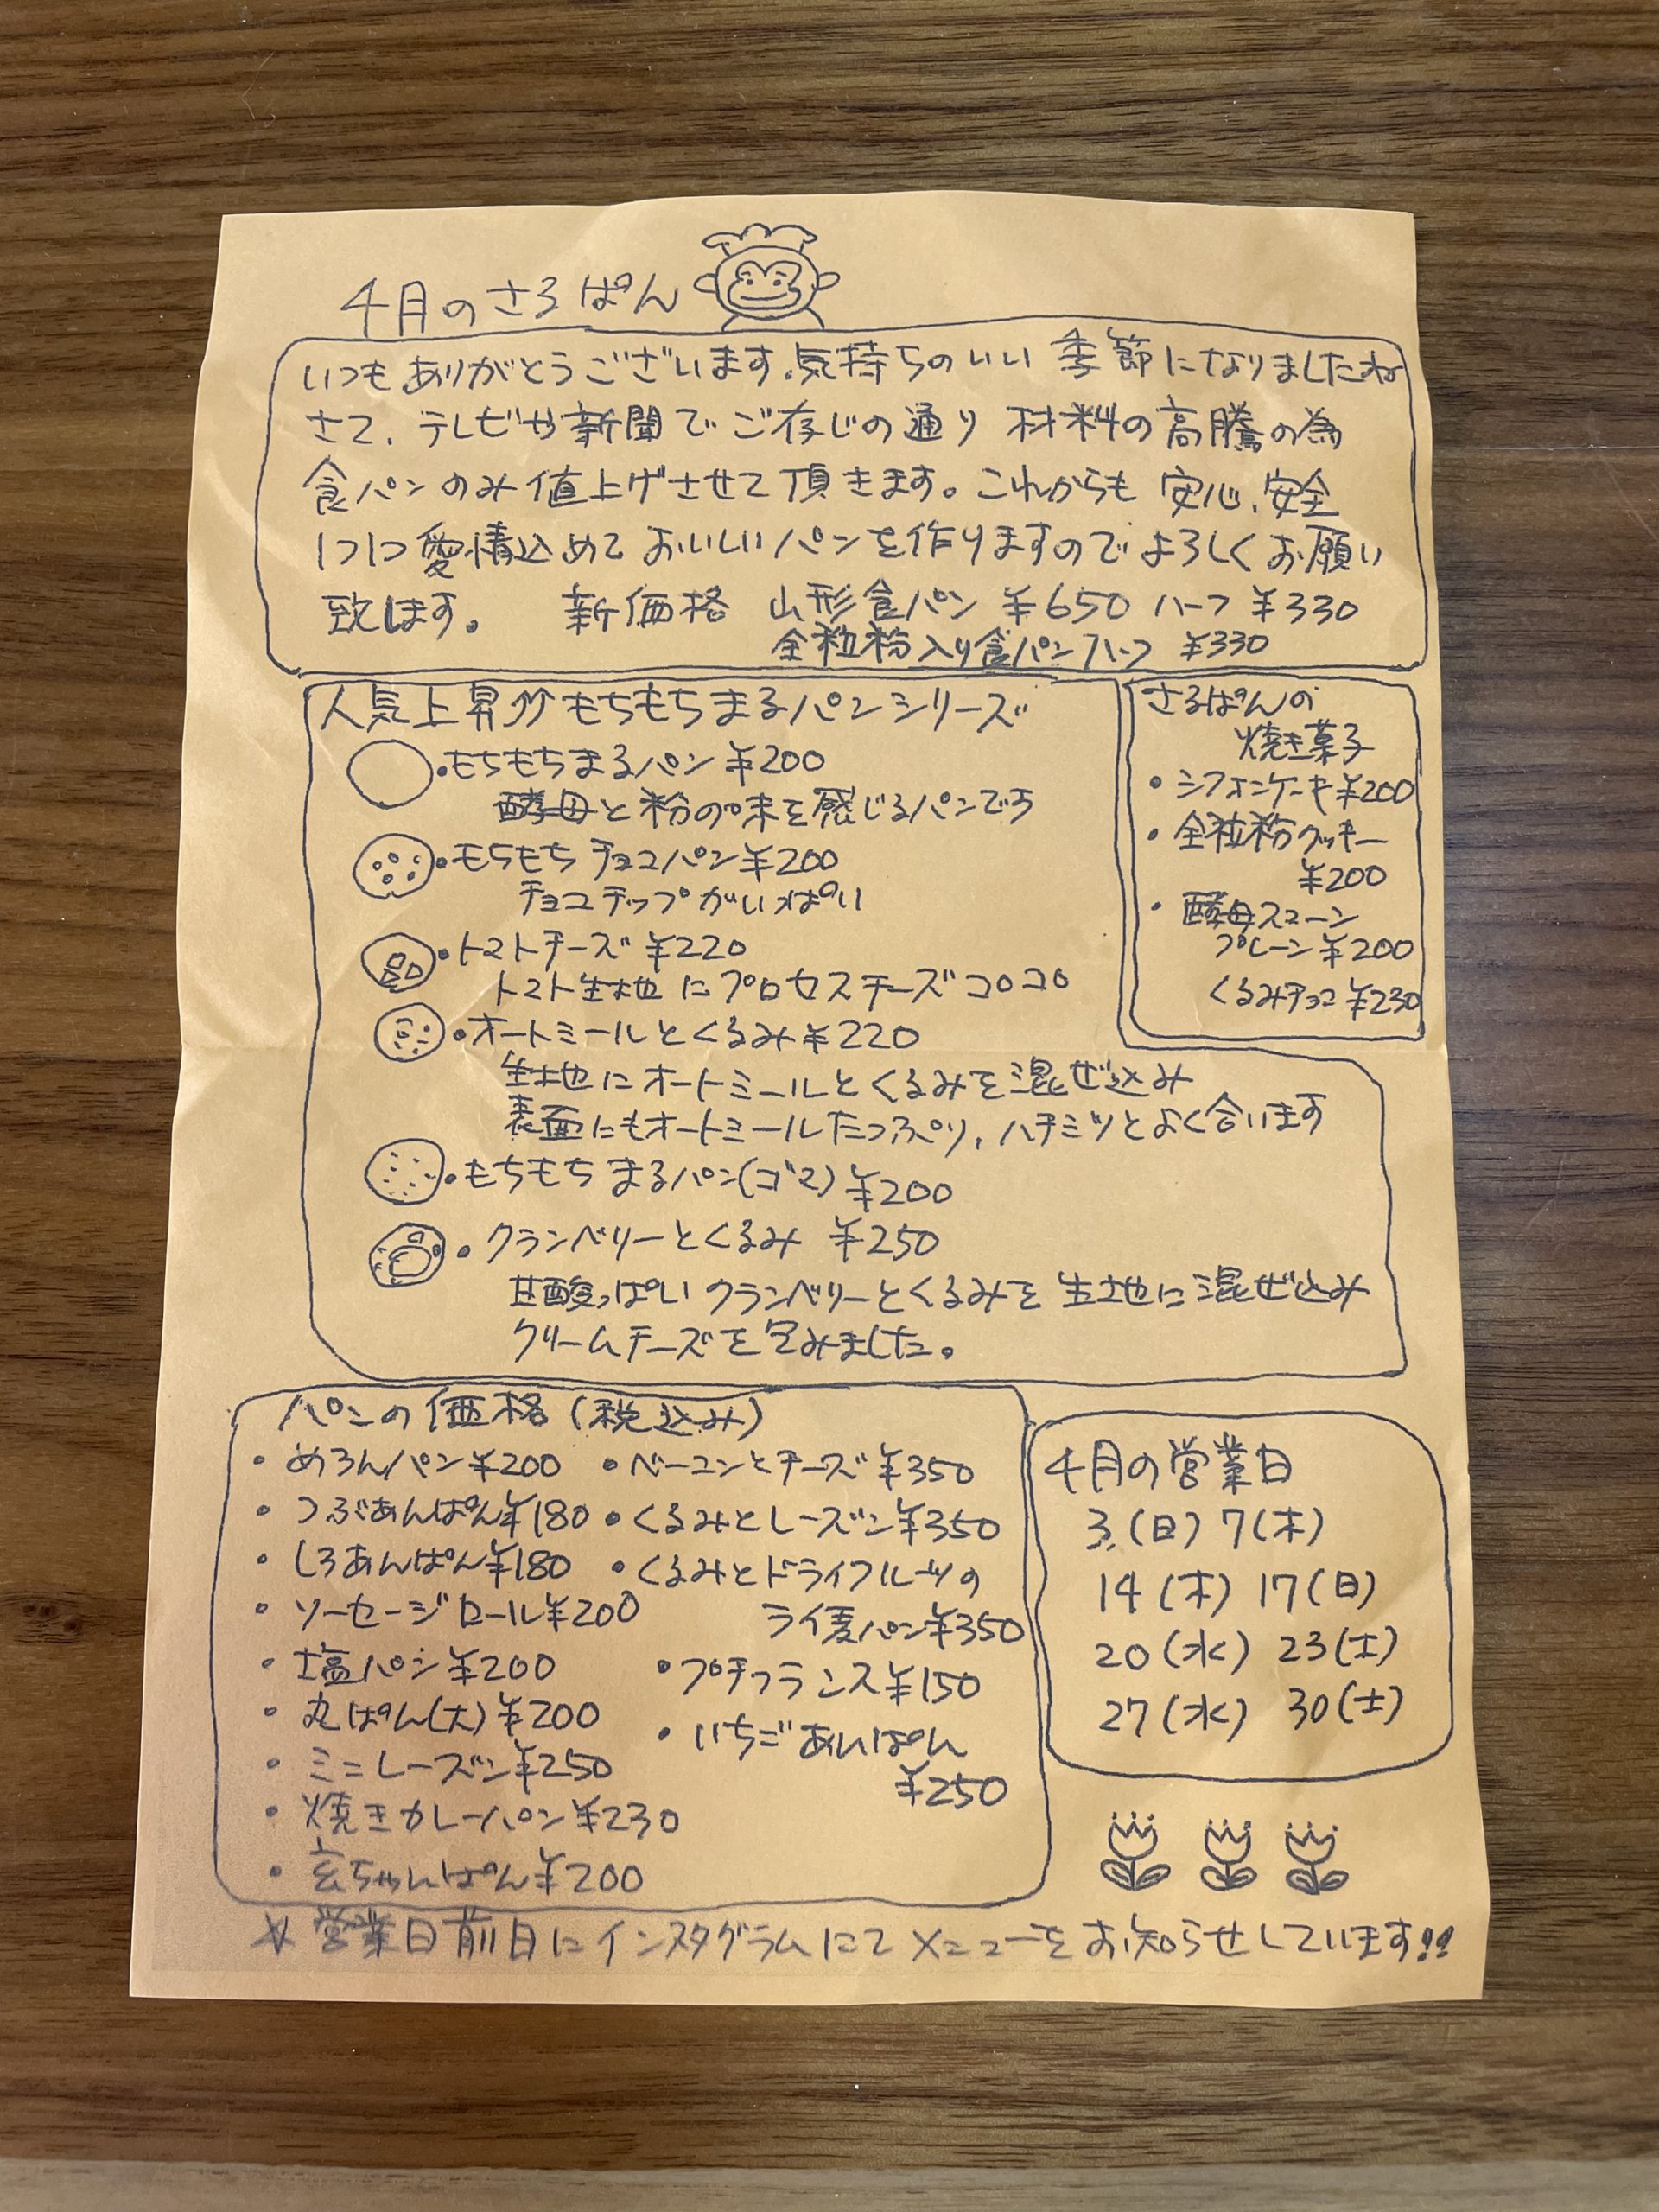 4月のさるぱん
いつもありがとうございます。気持ちのいい季節になりましたね
さて、テレビや新聞でご存じの通り 材料の高騰の為
食パンのみ値上げさせて頂きます。これからも 安心、安全
1つ1つ愛情込めて おいしいパンを作りますのでよろしくお願い
致します。 新価格 山形食パン ¥650 ハーフ ¥330
全粒粉入り食パンハーフ ¥330
人気上昇↑↑ もちもちまるパンシリーズ
・もちもちまるパン ¥200
酵母と粉の味を感じるパンです
・もちもちチョコパン ¥200
チョコチップがいっぱい
・トマトチーズ ¥220
トマト生地にプロセスチーズコロコロ
・オートミールとくるみ ¥220
生地にオートミールとくるみを混ぜ込み
表面にもオートミールたっぷり、ハチミツとよく合います
・もちもちまるパン(ゴマ) ¥200
・クランベリーとくるみ ¥250
甘酸っぱいクランベリーとくるみを生地に混ぜ込み
クリームチーズを包みました。
さるぱんの
焼き菓子
・シフォンケーキ¥200
・全粒粉クッキー
¥200
・酵母スコーン
プレーン¥200
くるみチョコ¥230
パンの価格(税込み)
・めろんパン¥200
・つぶあんぱん¥180
・しろあんぱん¥180
・ソーセージロール¥200
・塩パン¥200
・丸ぱん(大)¥200
・ミニレーズン¥250
・焼きカレーパン¥230
・玄ちゃんぱん¥200
・ベーコンとチーズ¥350
・くるみとレーズン¥350
・くるみとドライフルーツの
ライ麦パン¥350
・プチフランス¥150
・いちごあんぱん
¥250
4月の営業日
3(日) 7(木)
14(木) 17(日)
20(水) 23(土)
27(水) 30(土)
☆営業日前日にインスタグラムにてメニューをお知らせしています!!